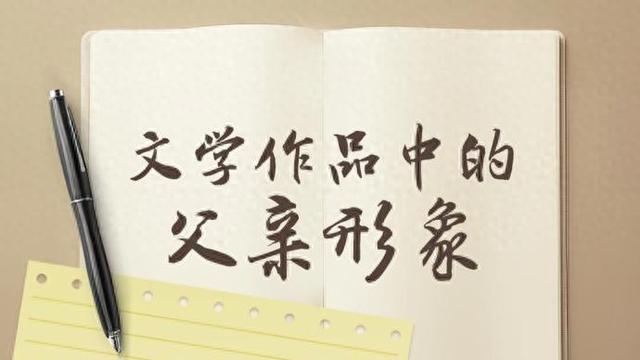 文学作品中的
父亲形象